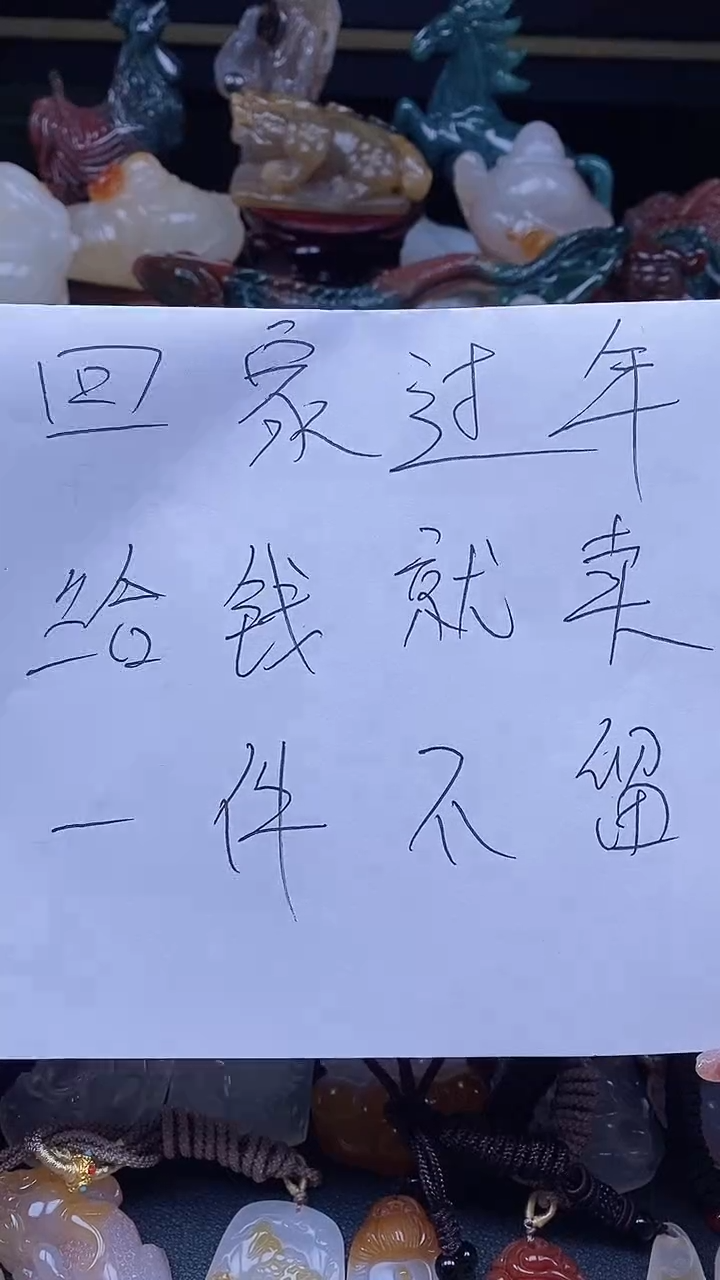 回家过年
给钱就卖
一件不留